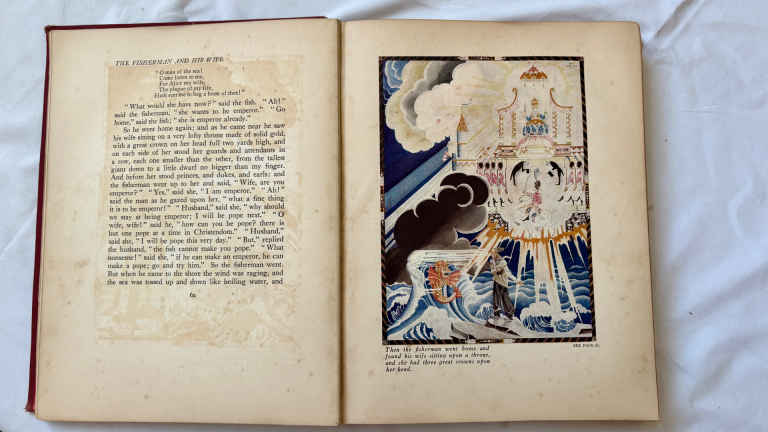 THE FISHERMAN AND HIS WIFE
"O man of the sea!
Come listen to me,
For Alice my wife,
The plague of my life,
Hath sent me to beg a boon of thee!"
"What would she have now?" said the fish. "Ah!"
said the fisherman, "she wants to be emperor." "Go
home," said the fish; "she is emperor already."
So he went home again; and as he came near he saw
his wife sitting on a very lofty throne made of solid gold,
with a great crown on her head full two yards high, and
on each side of her stood her guards and attendants in
a row, each one smaller than the other, from the tallest
giant down to a little dwarf no bigger than my finger.
And before her stood princes, and dukes, and earls: and
the fisherman went up to her and said, "Wife, are you
emperor?" "Yes," said she, "I am emperor." "Ah!"
said the man as he gazed upon her, "what a fine thing
it is to be emperor!" "Husband," said she, "why should
we stay at being emperor; I will be pope next." "O
wife, wife!" said he, "how can you be pope? there is
but one pope at a time in Christendom." "Husband,"
said she, "I will be pope this very day." "But," replied
the husband, "the fish cannot make you pope." "What
nonsense!" said she, "if he can make an emperor, he can
make a pope; go and try him." So the fisherman went.
But when he came to the shore the wind was raging, and
the sea was tossed up and down like boiling water, and
Then the fisherman went home and
found his wife sitting upon a throne,
and she had three great crowns upon
her head.